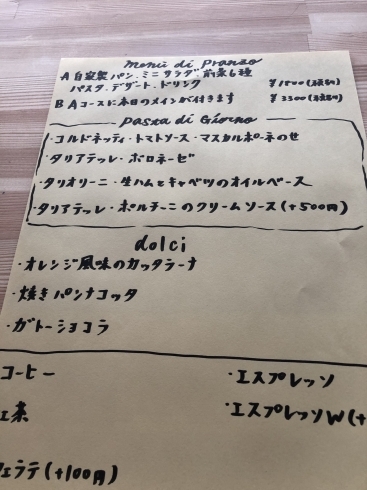 menu di Pranzo
A 自家製パン・ミニサラダ・前菜6種
パスタ・デザート・ドリンク
B Aコースに本日のメインが付きます ¥3300(税込)
Pasta di Giorno
・コルドネッティ・トマトソース・マスカルポーネのせ
・タリアテッレ・ボロネーゼ
・タリオリーニ・生ハムとキャベツのオイルベース
・タリアテッレ・ポルチーニのクリームソース(+500円)
dolci
・オレンジ風味のカッサターナ
・焼きパンナコッタ
・ガトーショコラ
コーヒー ・エスプレッソ
紅茶 ・エスプレッソW(+
フェラテ(+100円)